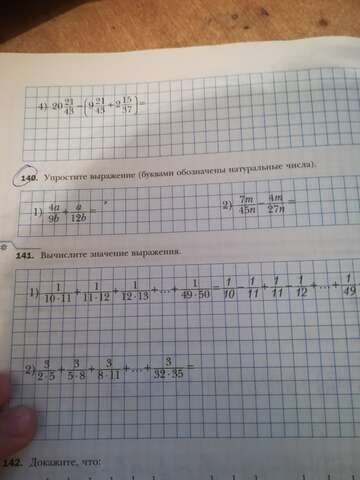 4) 20 21/43 − (9 21/43 + 2 15/37) =
140. Упростите выражение (буквами обозначены натуральные числа).
1) 4a/9b + a/12b =
2) 7m/45n − 4m/27n =
141. Вычислите значение выражения.
1) 1/10·11 + 1/11·12 + 1/12·13 + ... + 1/49·50 = 1/10 − 1/11 + 1/11 − 1/12 + ... + 1/49
2) 3/2·5 + 3/5·8 + 3/8·11 + ... + 3/32·35 =
142. Докажите, что: